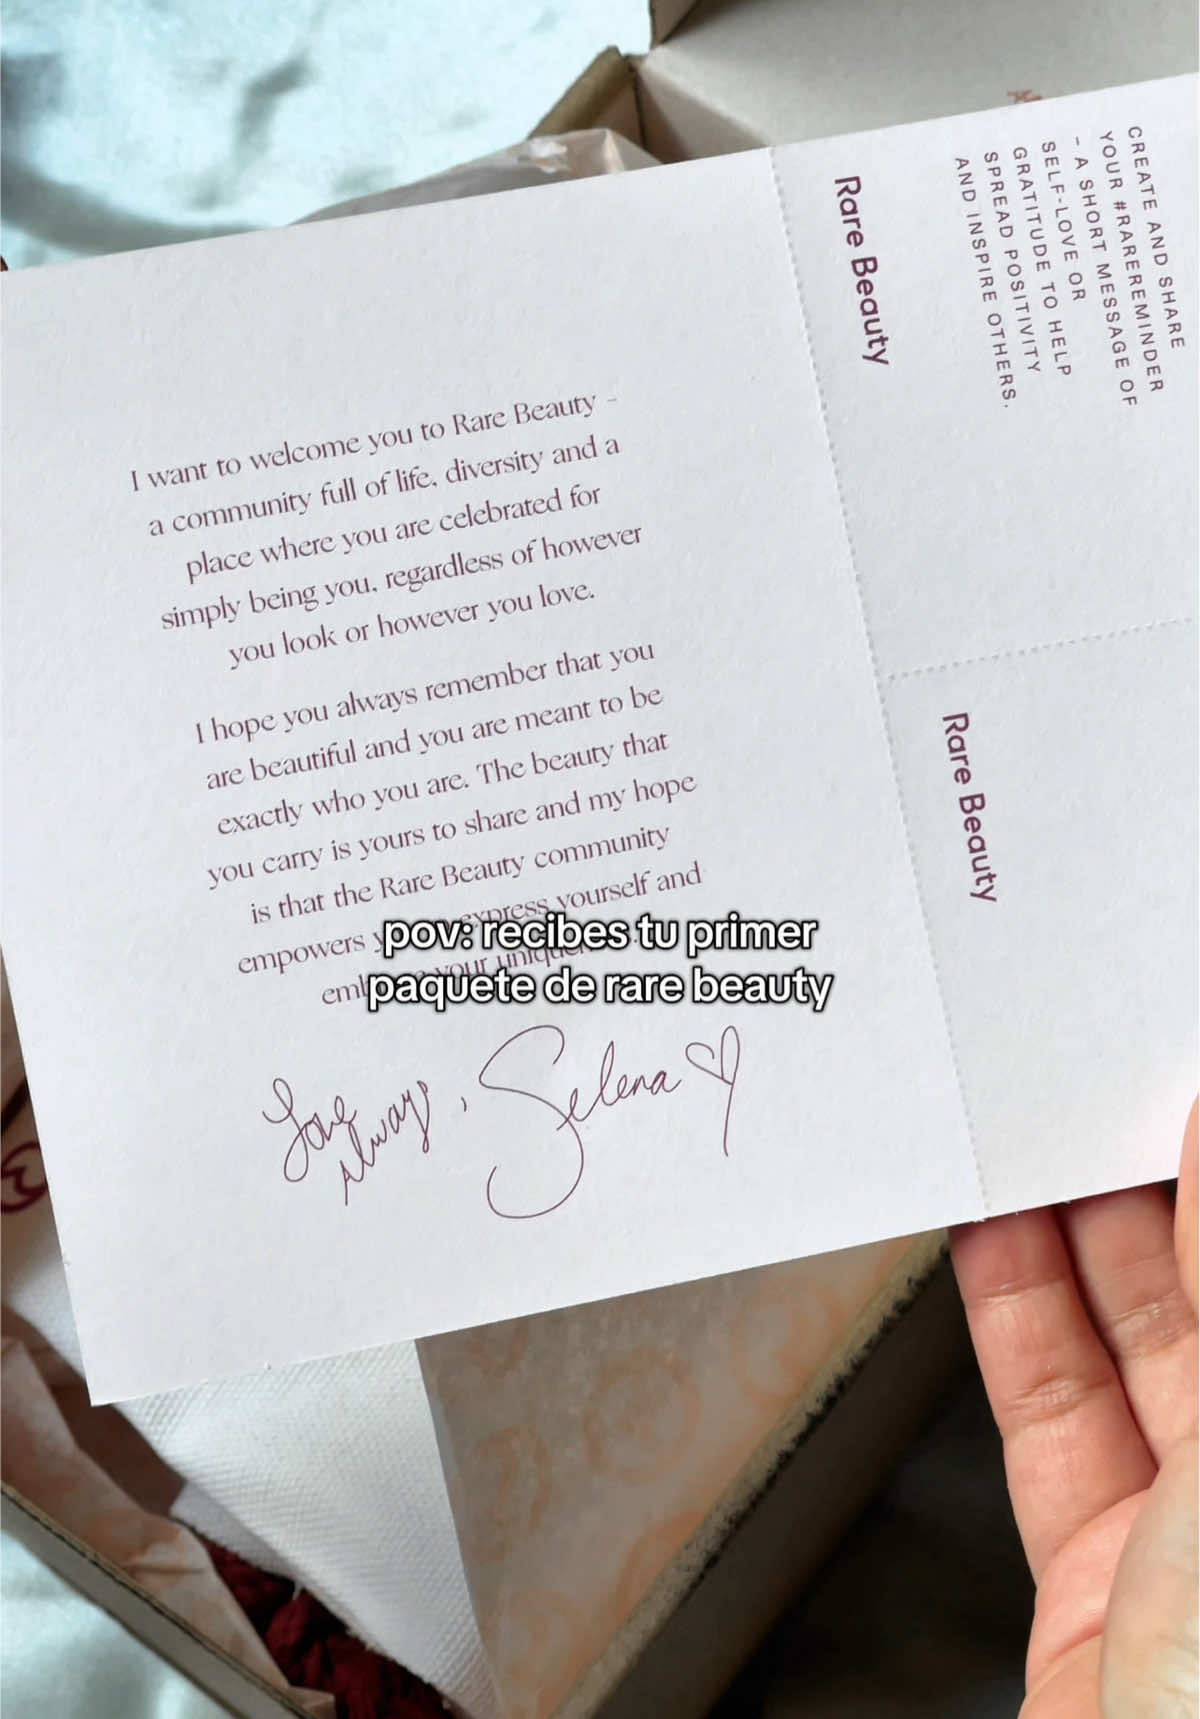 I want to welcome you to Rare Beauty –
a community full of life, diversity and a
place where you are celebrated for
simply being you, regardless of however
you look or however you love.
I hope you always remember that you
are beautiful and you are meant to be
exactly who you are. The beauty that
you carry is yours to share and my hope
is that the Rare Beauty community
empowers express yourself and
your
pov: recibes tu primer
paquete de rare beauty
Love Always, Selena
Rare Beauty
CREATE AND SHARE
YOUR #RAREREMINDER
- A SHORT MESSAGE OF
SELF-LOVE OR
GRATITUDE TO HELP
SPREAD POSITIVITY
AND INSPIRE OTHERS.
Rare Beauty